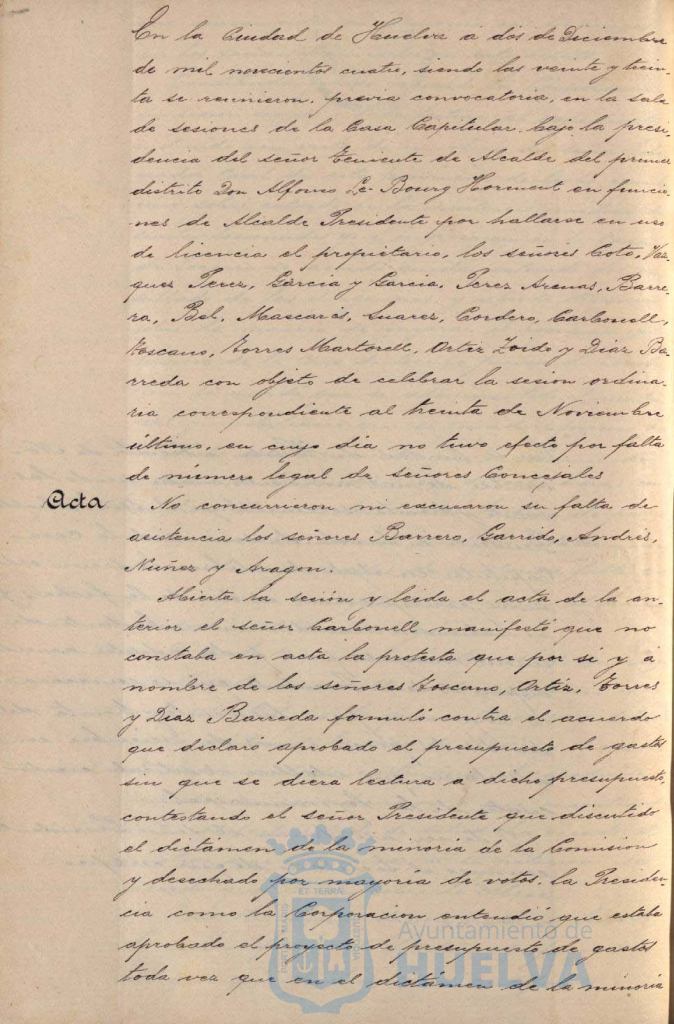 En la Ciudad de Huelva á dos de Diciembre
de mil novecientos cuatro, siendo las veinte y trein-
ta se reunieron, previa convocatoria, en la sala
de sesiones de la Casa Capitular, bajo la presi-
dencia del señor Teniente de Alcalde del primer
distrito Don Alfonso Le-Bourg Horment en funcio-
nes de Alcalde Presidente por hallarse en uso
de licencia el propietario, los señores Coto, Vaz-
quez Perez, Garcia y Garcia, Perez Arenas, Barre-
ra, Bel, Mascarós, Suarez, Cordero, Carbonell,
Toscano, Torres Martorell, Ortiz Zoido y Diaz Ba-
rreda con objeto de celebrar la sesion ordina-
ria correspondiente al treinta de Noviembre
último, en cuyo dia no tuvo efecto por falta
de número legal de señores Concejales
Acta
No concurrieron ni excusaron su falta de
asistencia los señores Barrero, Garrido, Andrés,
Nuñez y Aragon.
Abierta la sesión y leida el acta de la an-
terior el señor Carbonell manifestó que no
constaba en acta la protesta que por si y á
nombre de los señores Toscano, Ortiz, Torres
y Diaz Barreda formuló contra el acuerdo
que declaró aprobado el presupuesto de gastos
sin que se diera lectura á dicho presupuesto,
contestando el señor Presidente que discutido
el dictámen de la minoria de la Comision
y desechado por mayoría de votos, la Presiden-
cia como la Corporacion entendió que estaba
aprobado el proyecto de presupuesto de gastos
toda vez que en el dictámen de la minoria
Ayuntamiento de
HUELVA